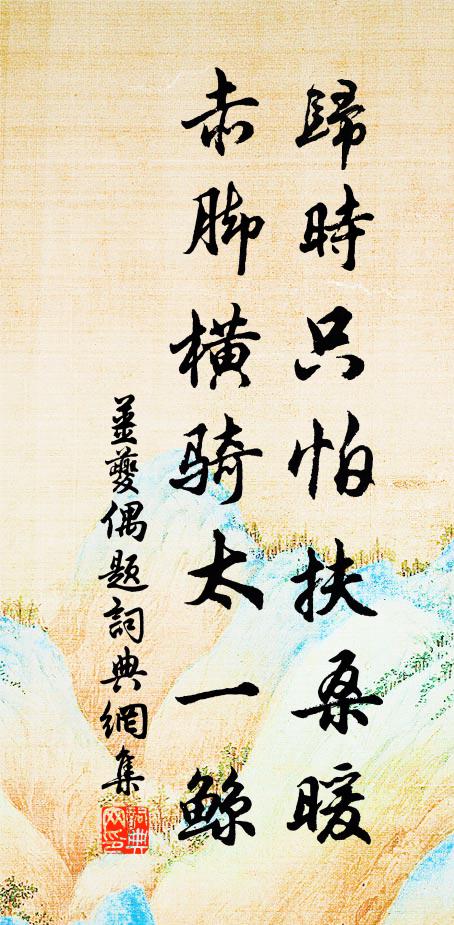 歸時只怕扶桑暖
赤脚橫騎太一鲸
姜夔偶題詞典網集
詞典
网印